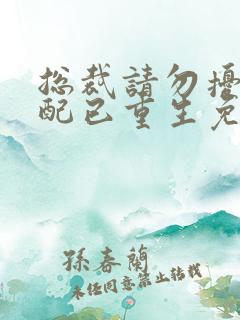 总裁請勿擾
配已重生免
孫春蘭
未经同意禁止转载